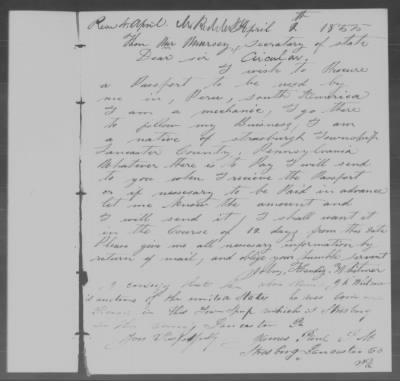 April 9th 1855
Hon Wm Marcey, Secretary of state
Dear sir Circular,
I wish to Procure
a Passport to be used by
me in, Peru, South America
I am a mechanic, I go there
to follow my Business, I am
native of Strasburgh Township
Lancaster County, Pennsylvania
Whatever there is to Pay I will send
to you when I receive the Passport
or if nessesary to be Paid in advance
let me know the amount and
I will send it, I shall want it
in the Course of 12 days from this date
Please give me all necessary information by
return of mail, and oblige your humble servant
John, Hendry, Witmer
I certify that the above
is a native of the united states he was born
in this Township which is Strasburg
in the county Lancaster Pa
yours Respectfully
James P M
Strasburg Lancaster Co
Pa